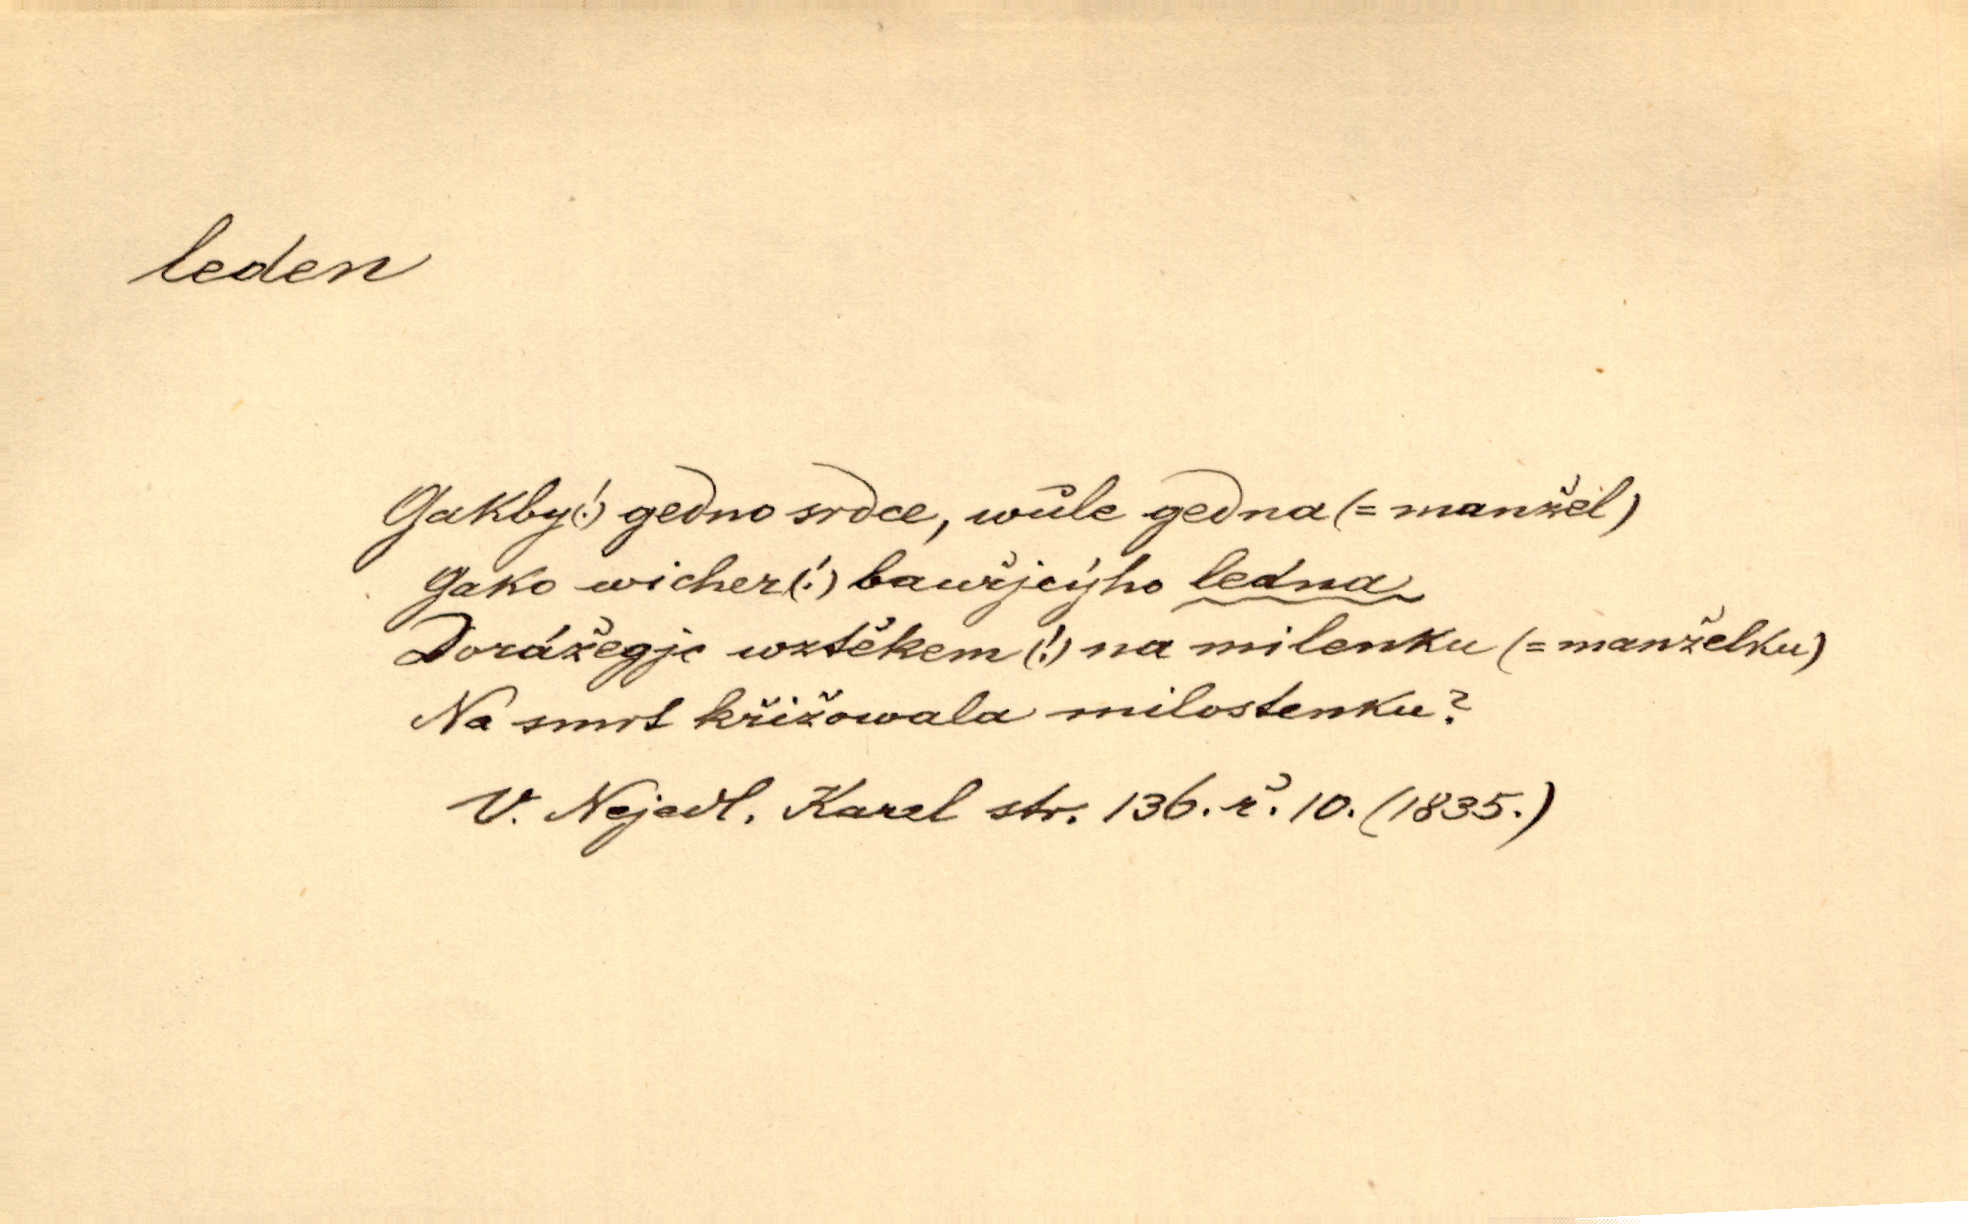 leden
Gakby(!) gedno srdce, wůle gedna (= manžel)
Gako wicher(!) bauřjcýho ledna
Dorážegjc wztěkem (!) na milenku (= manželku)
Na smrt křižowala milostenku?
V. Nejedl. Karel str. 136. ř. 10. (1835.)